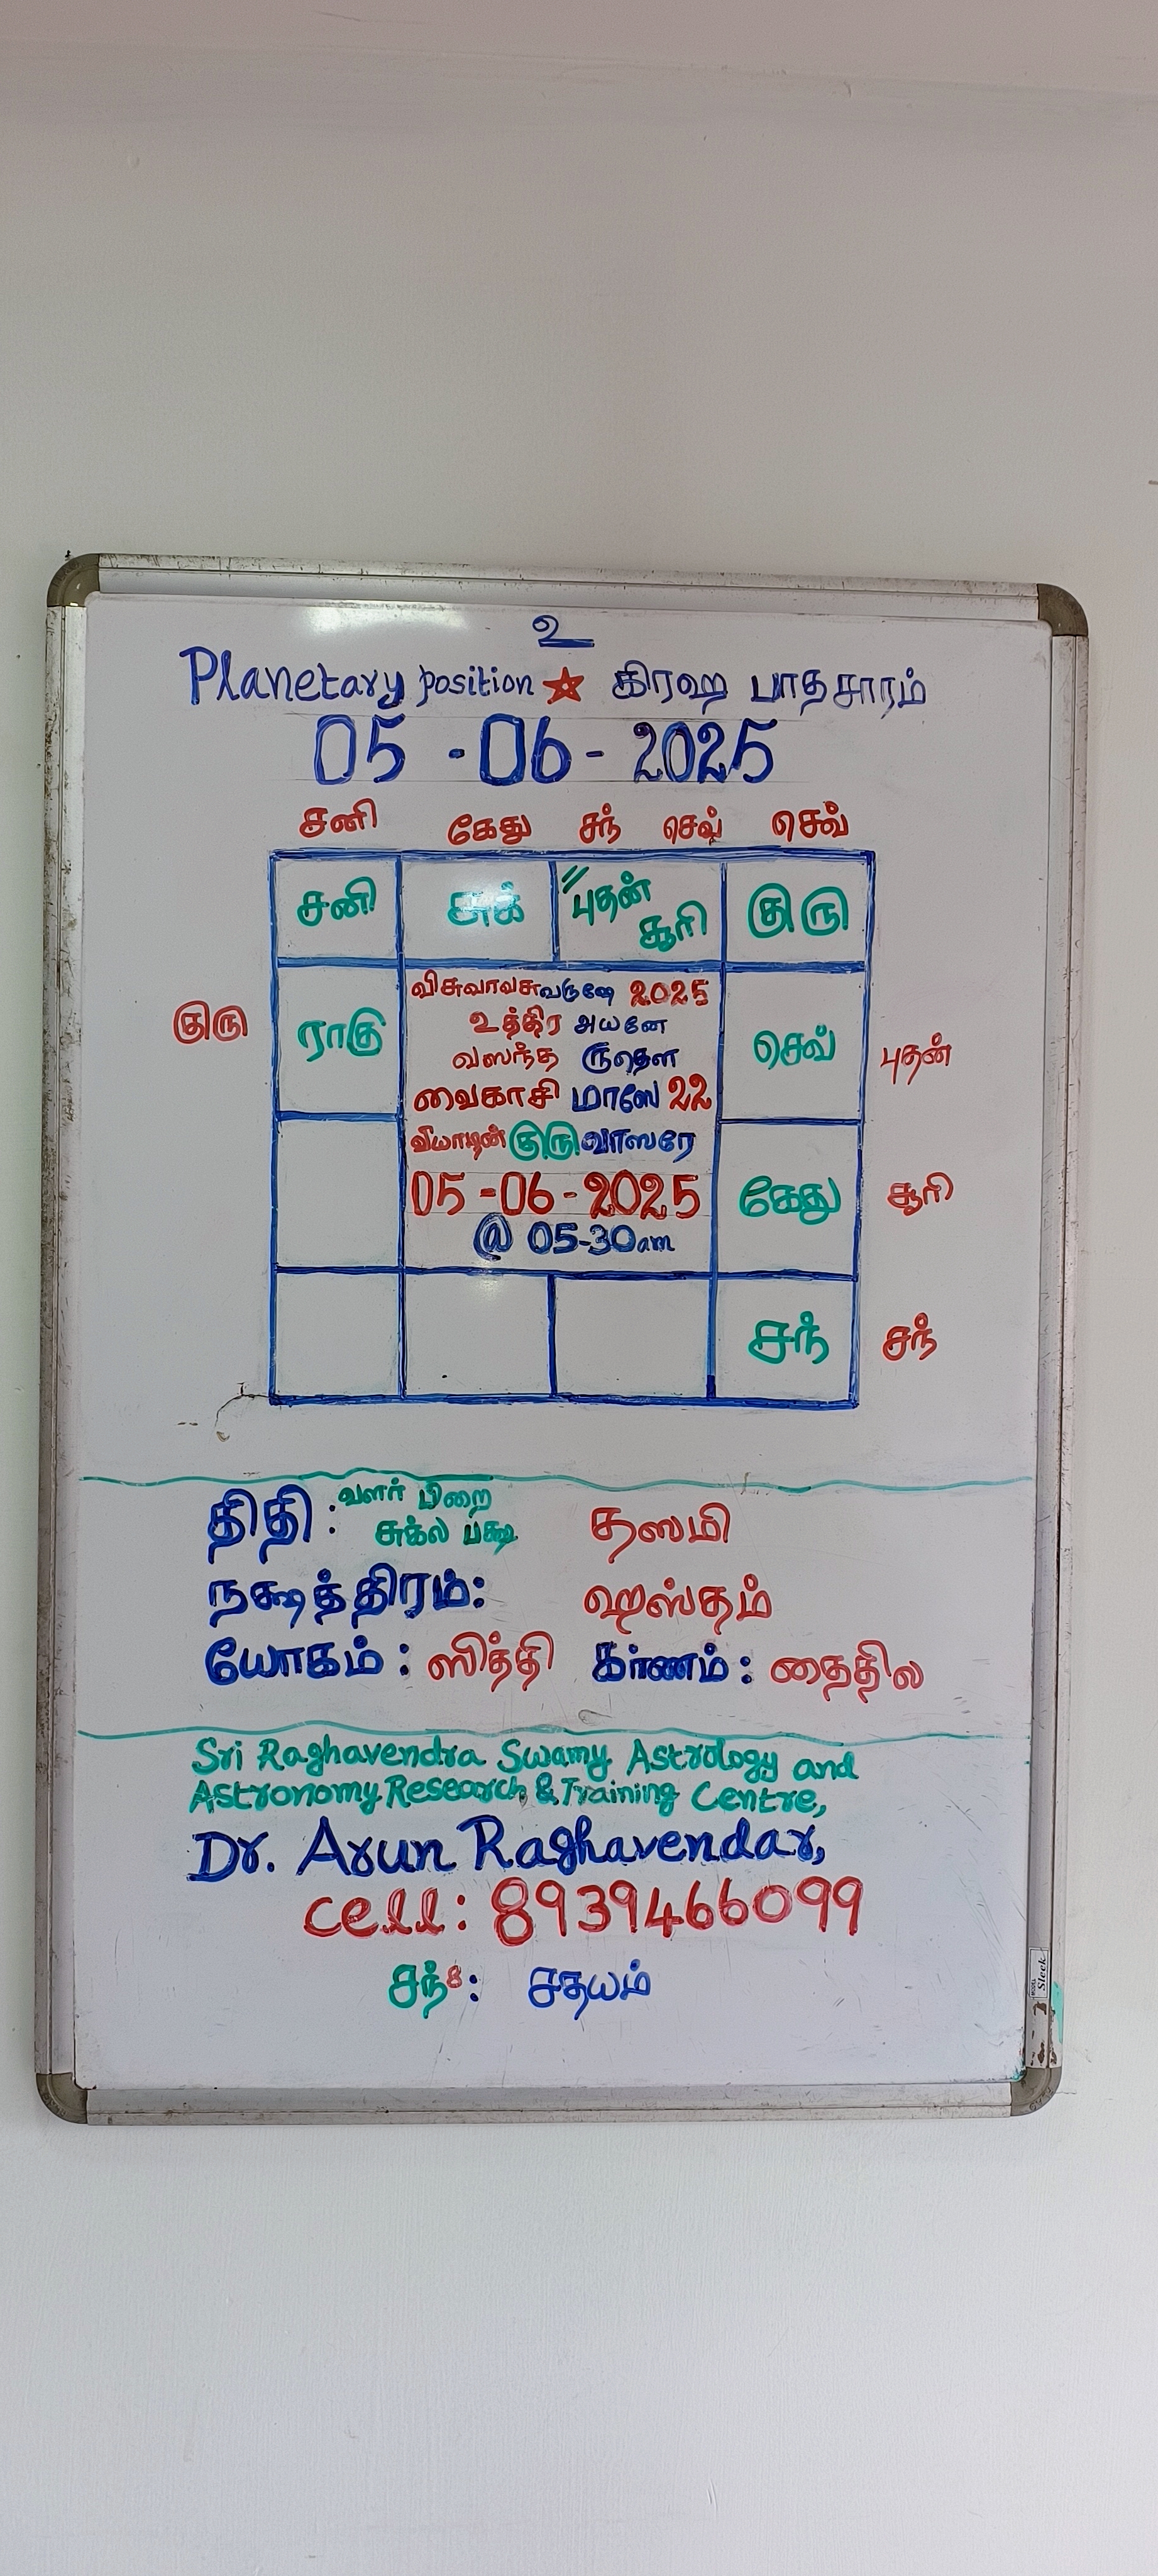 உ
Planetary position ★ கிரஹ பாதசாரம்
05 - 06 - 2025
சனி கேது சந் செவ் செவ்
சனி சுக் "புதன் சூரி குரு
விசுவாவசுவருஷே 2025
உத்திர அயனே
வஸந்த ருதௌ
வைகாசி மாஸே 22
வியாழன் குரு வாஸரே
05 - 06 - 2025
@ 05-30am
குரு ராகு செவ் புதன்
கேது சூரி
சந் சந்
திதி : வளர் பிறை
சுக்ல பக்ஷ தஸமி
நக்ஷத்திரம்: ஹஸ்தம்
யோகம் : ஸித்தி கர்ணம் : தைதில
Sri Raghavendra Swamy Astrology and
Astronomy Research & Training Centre,
Dr. Arun Raghavendar,
cell : 8939466099
சந்8 : சதயம்